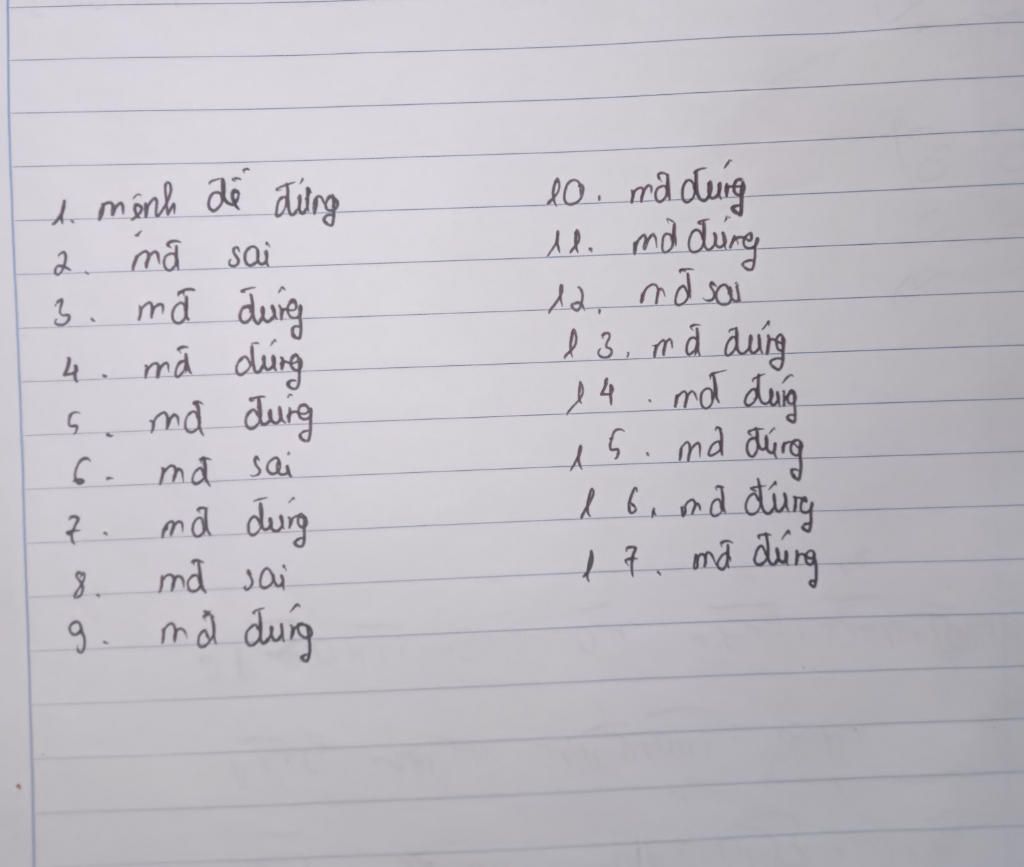 1. mệnh đề đúng
2. mđ sai
3. mđ đúng
4. mđ đúng
5. mđ đúng
6. mđ sai
7. mđ đúng
8. mđ sai
9. mđ đúng
10. mđ đúng
11. mđ đúng
12. mđ sai
13. mđ đúng
14. mđ đúng
15. mđ đúng
16. mđ đúng
17. mđ đúng